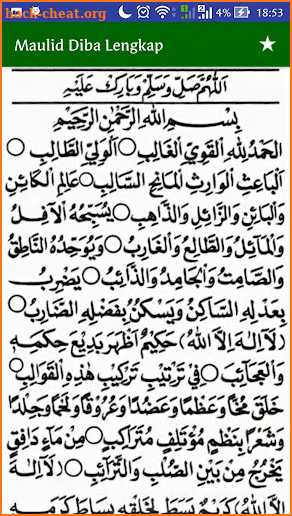 hack-cheat.org
18:53
4%
Maulid Diba Lengkap
اَللّٰهُمَّ صَلِّ وَسَلِّمْ وَبَارِكْ عَلَيْهِ
بِسْمِ اللهِ الرَّحْمٰنِ الرَّحِيْمِ
اَلْحَمْدُ لِلّٰهِ الْقَوِيِّ الْغَالِبِ ○ اَلْوَلِيِّ الطَّالِبِ ○
اَلْبَاعِثِ الْوَارِثِ الْمَانِحِ السَّالِبِ ○ عَالِمِ الْكَائِنِ
وَالْبَائِنِ وَالزَّائِلِ وَالذَّاهِبِ ○ يُسَبِّحُهُ الْاٰفِلُ
وَالْمَائِلُ وَالطَّالِعُ وَالْغَارِبُ ○ وَيُوَحِّدُهُ النَّاطِقُ
وَالصَّامِتُ وَالْجَامِدُ وَالذَّائِبُ ○ يَضْرِبُ
بِعَدْلِهِ السَّاكِنُ وَيَسْكُنُ بِفَضْلِهِ الضَّارِبُ ○
(لَا اِلٰهَ اِلَّا اللهُ) حَكِيْمٌ اَظْهَرَ بَدِيْعَ حِكَمِهِ
وَالْعَجَائِبَ ○ فِيْ تَرْتِيْبِ تَرْكِيْبِ هٰذِهِ الْقَوَالِبِ ○
خَلَقَ مُخًّا وَعَظْمًا وَعَضُدًا وَعُرُوْقًا وَلَحْمًا وَجِلْدًا
وَشَعْرًا بِنَظْمٍ مُؤْتَلِفٍ مُتَرَاكِبٍ ○ مِنْ مَاءٍ دَافِقٍ
يَخْرُجُ مِنْ بَيْنِ الصُّلْبِ وَالتَّرَائِبِ ○ (لَا اِلٰهَ
اِلَّا اللهُ) كَرِيْمٌ بَسَطَ لِخَلْقِهِ بِسَاطَ كَرَمِهِ
hack-cheat.org